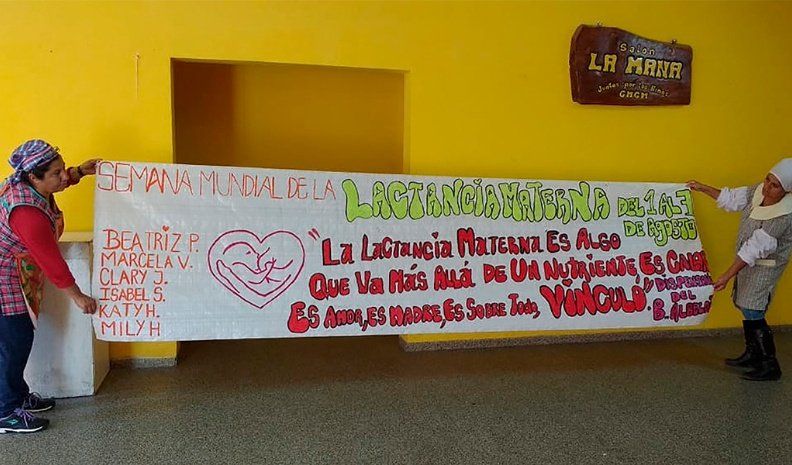 Salon
LA MANA
Juntos por los Niños
GMGM
SEMANA MUNDIAL DE LA LACTANCIA MATERNA DEL 1 AL 7
DE AGOSTO
BEATRIZ P.
MARCELA V.
CLARY J.
ISABEL S.
KATY H.
MILY H
"LA LACTANCIA MATERNA ES ALGO
QUE VA MÁS ALLÁ DE UN NUTRIENTE ES CALOR
ES AMOR, ES MADRE, ES SOBRE TODO, VINCULO"
DISPENSARIO
DEL
B.